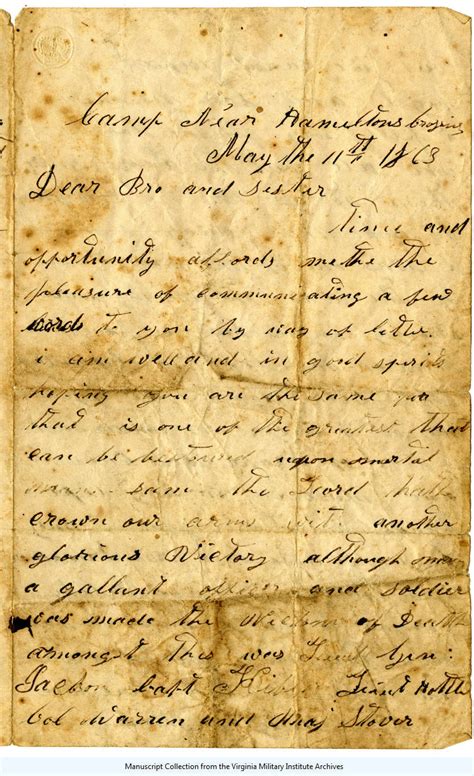 Camp Near Hamiltons Crossing
May the 11th 1863
Dear Bro and Sister
time and
opportunity affords me the the
pleasure of communicating a few
words to you by way of letter.
i am well and in good spirits
hoping you are the same for
that is one of the greatest that
can be bestowed upon mortal
man Sam the Lord hath
crown our arms with another
glorious Victory although many
a gallant officer and soldier
was made the Victim of Death
amongst this was Lieut Gen:
Jackson Capt Lieut
Col Warren and Maj Stover
Manuscript Collection from the Virginia Military Institute Archives